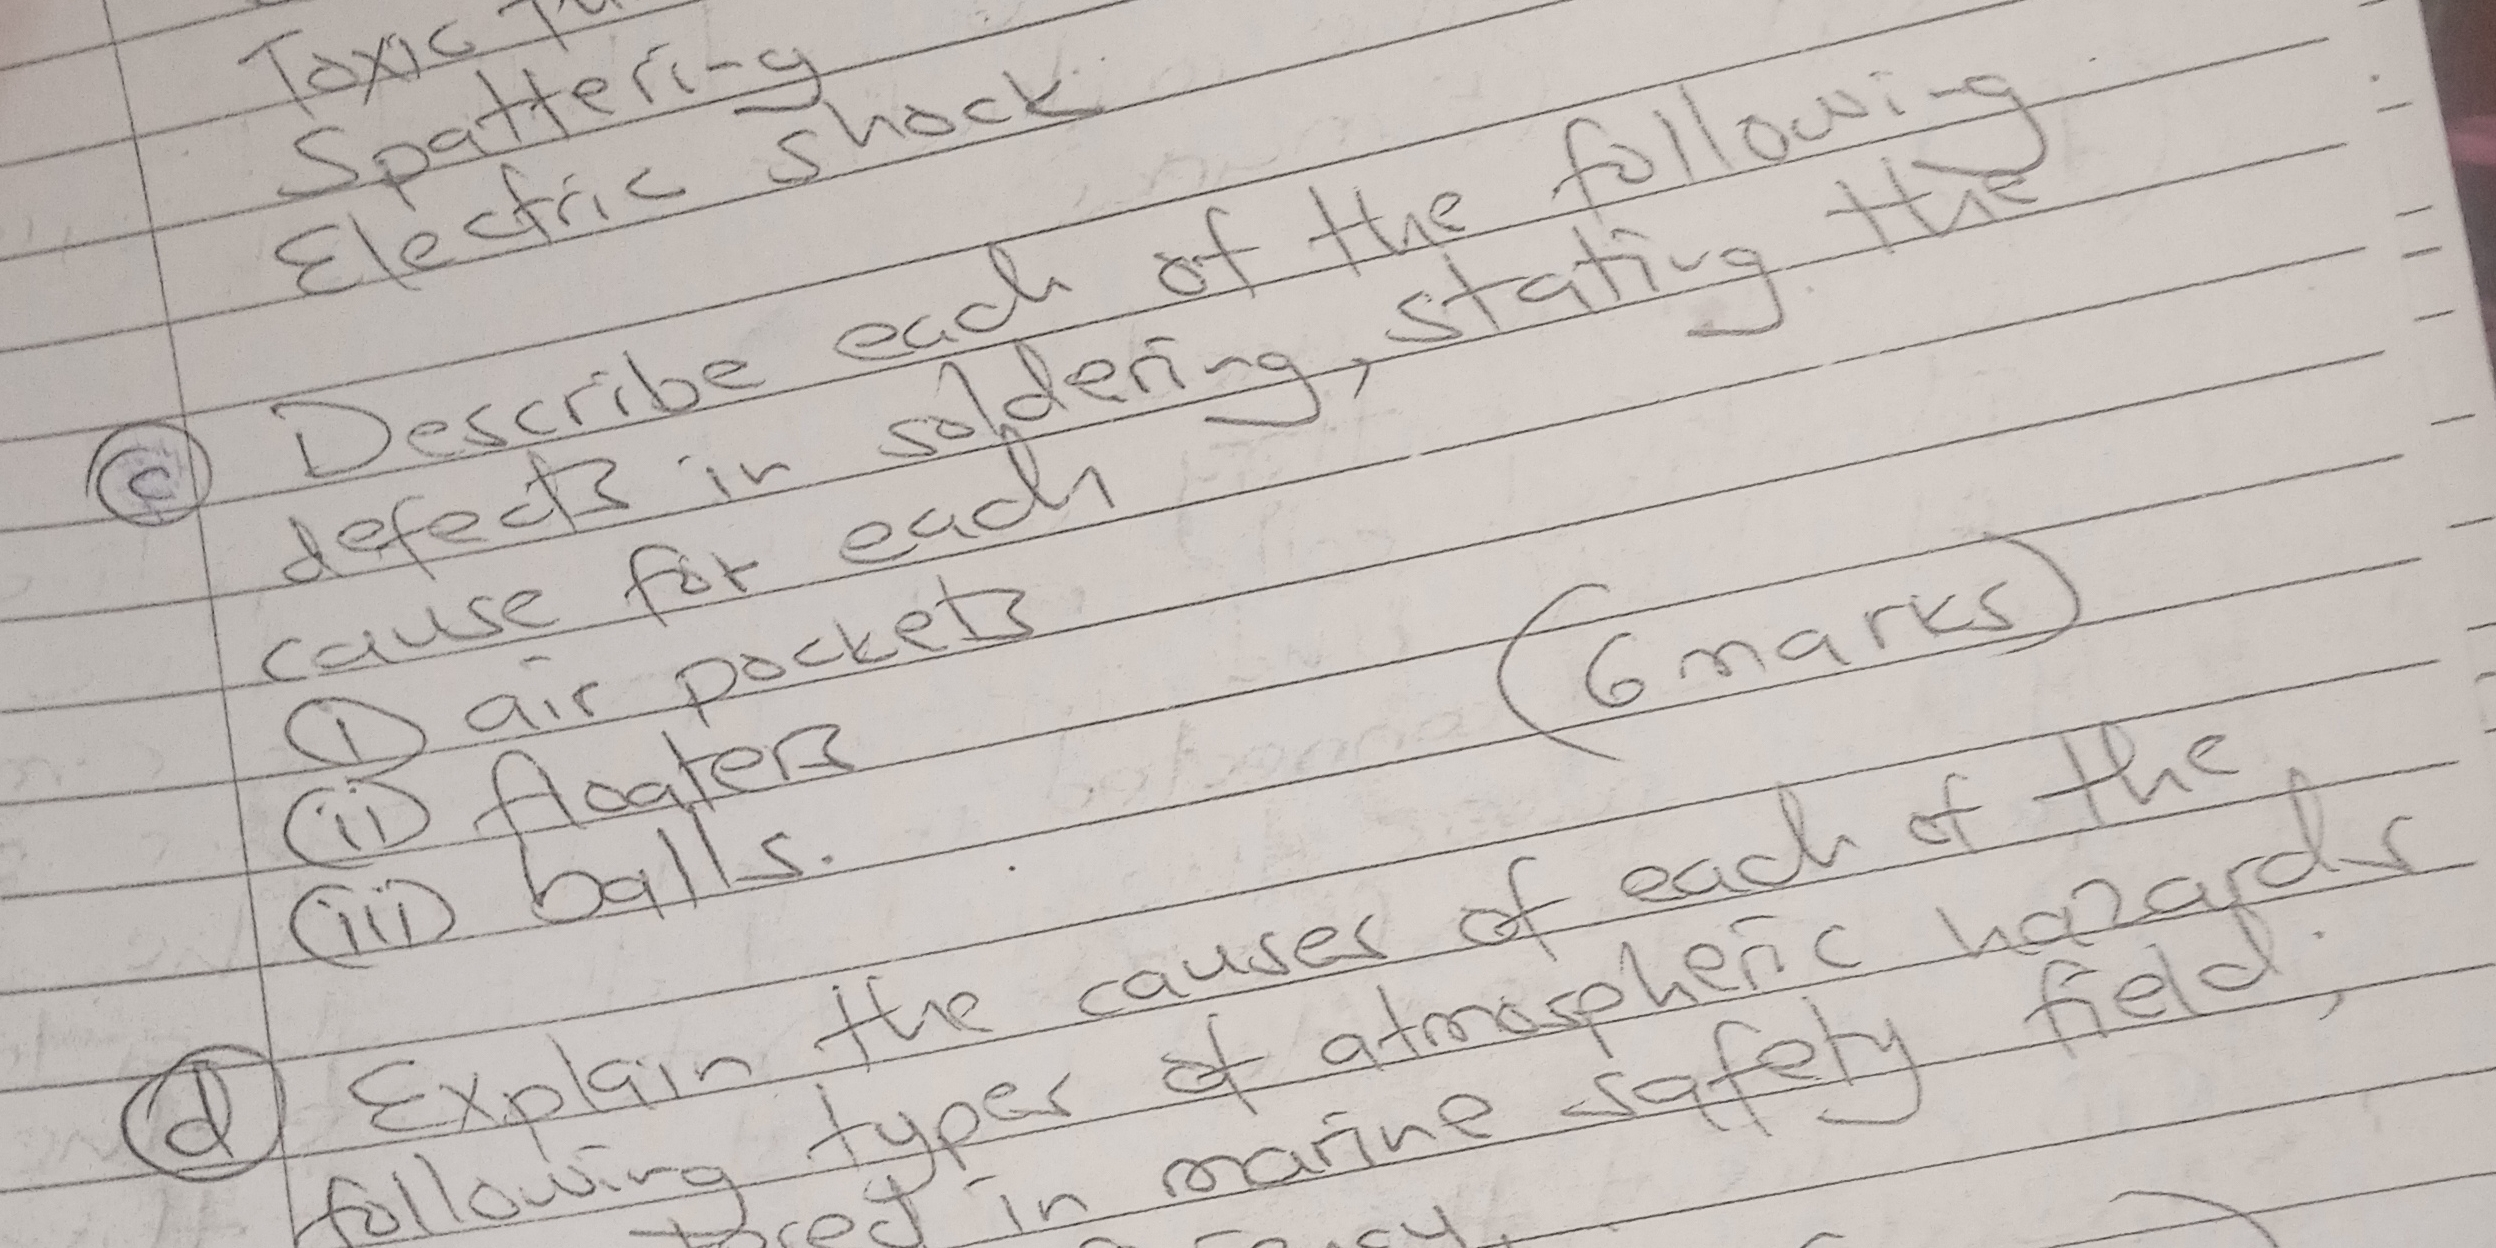 Toxic
Spattering
Electric shock
(c) Describe each of the following
defects in soldering, stating the
cause for each
(i) air pockets
(ii) floaters
(iii) balls.
(6 marks)
(d) Explain the causes of each of the
following types of atmospheric hazards
in marine safety field;